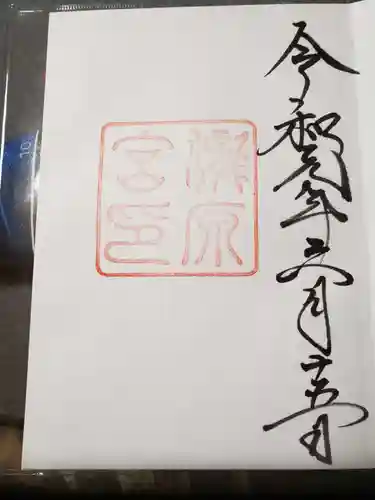 令和元年六月十五日
原
宮印